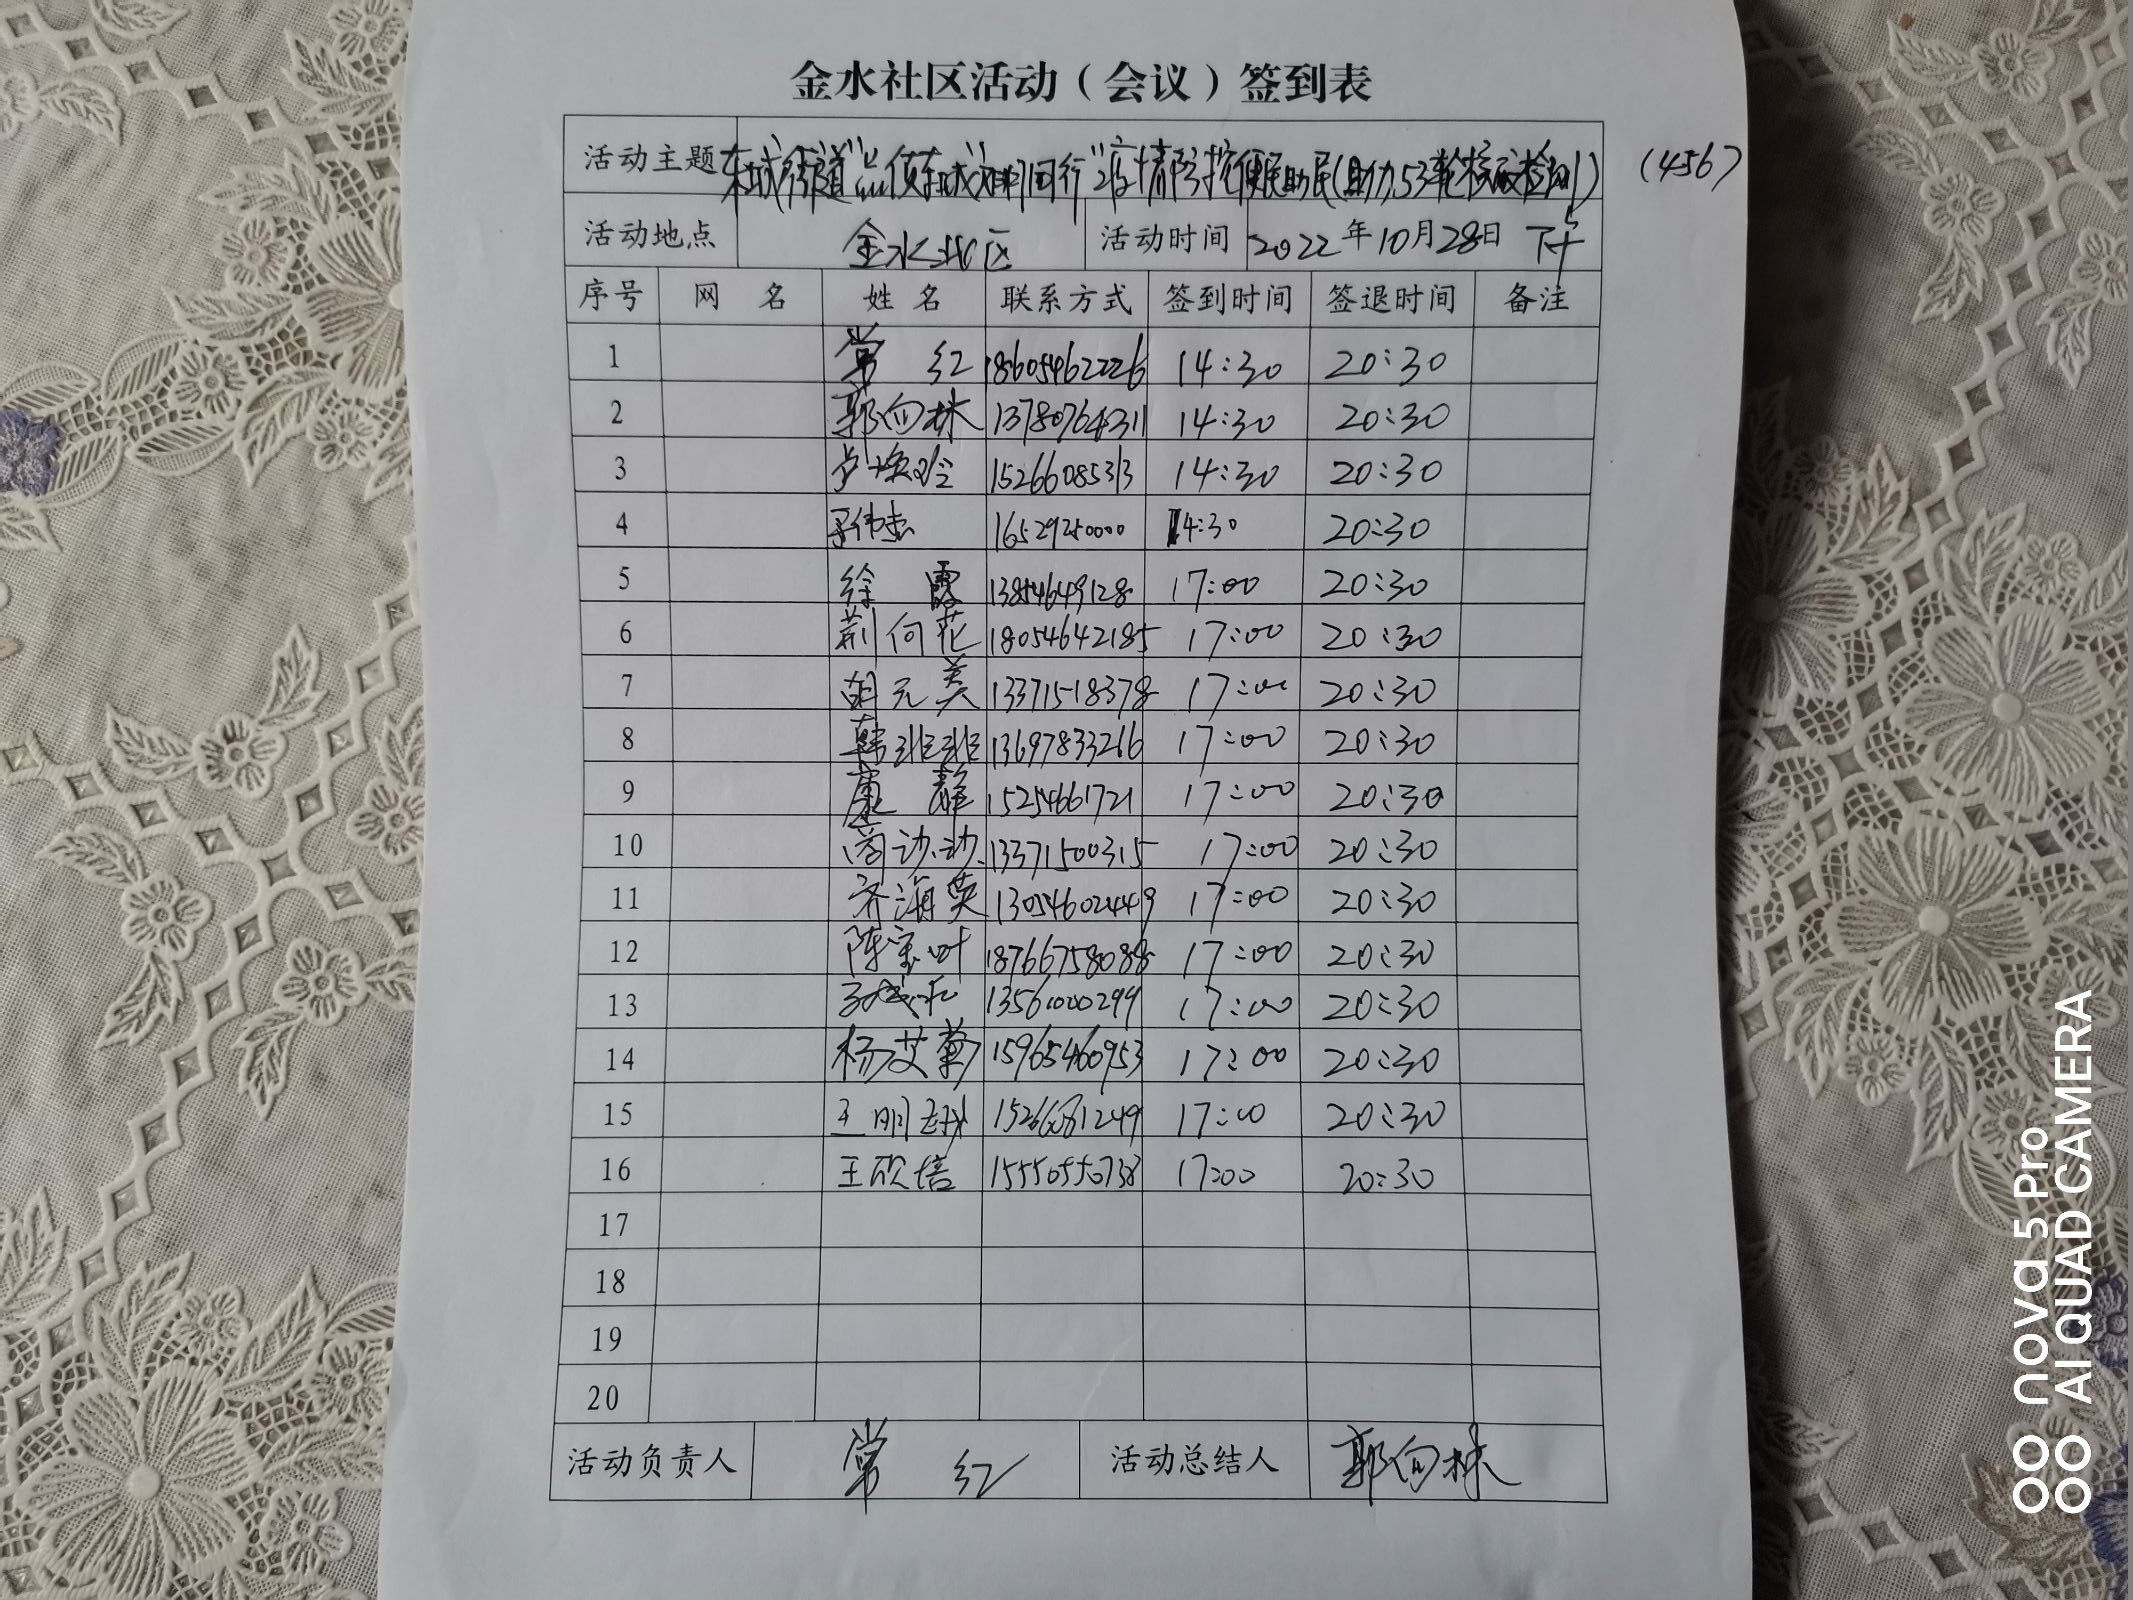 金水社区活动（会议）签到表
活动主题 东城街道"点侦东城""邻里同行"疫情防控便民助民(助力53轮核酸检测) (456)
活动地点 金水社区 活动时间 2022年10月28日 下午
序号 网名 姓名 联系方式 签到时间 签退时间 备注
1 常红 18605462226 14:30 20:30
2 郭向林 13780764311 14:30 20:30
3 15266085313 14:30 20:30
4 16529250000 14:30 20:30
5 徐霞 13854649128 17:00 20:30
6 荆何花 18054642185 17:00 20:30
7 胡元美 13371518378 17:00 20:30
8 韩非非 13697833216 17:00 20:30
9 康静 15254661721 17:00 20:30
10 13371500315 17:00 20:30
11 齐海英 13054602449 17:00 20:30
12 陈宝叶 18766758088 17:00 20:30
13 13561000299 17:00 20:30
14 杨艾菊 15965460953 17:00 20:30
15 王明 15266081249 17:00 20:30
16 王欣倍 15550550738 17:00 20:30
17
18
19
20
活动负责人 常红 活动总结人 郭向林
nova 5 Pro
AI QUAD CAMERA